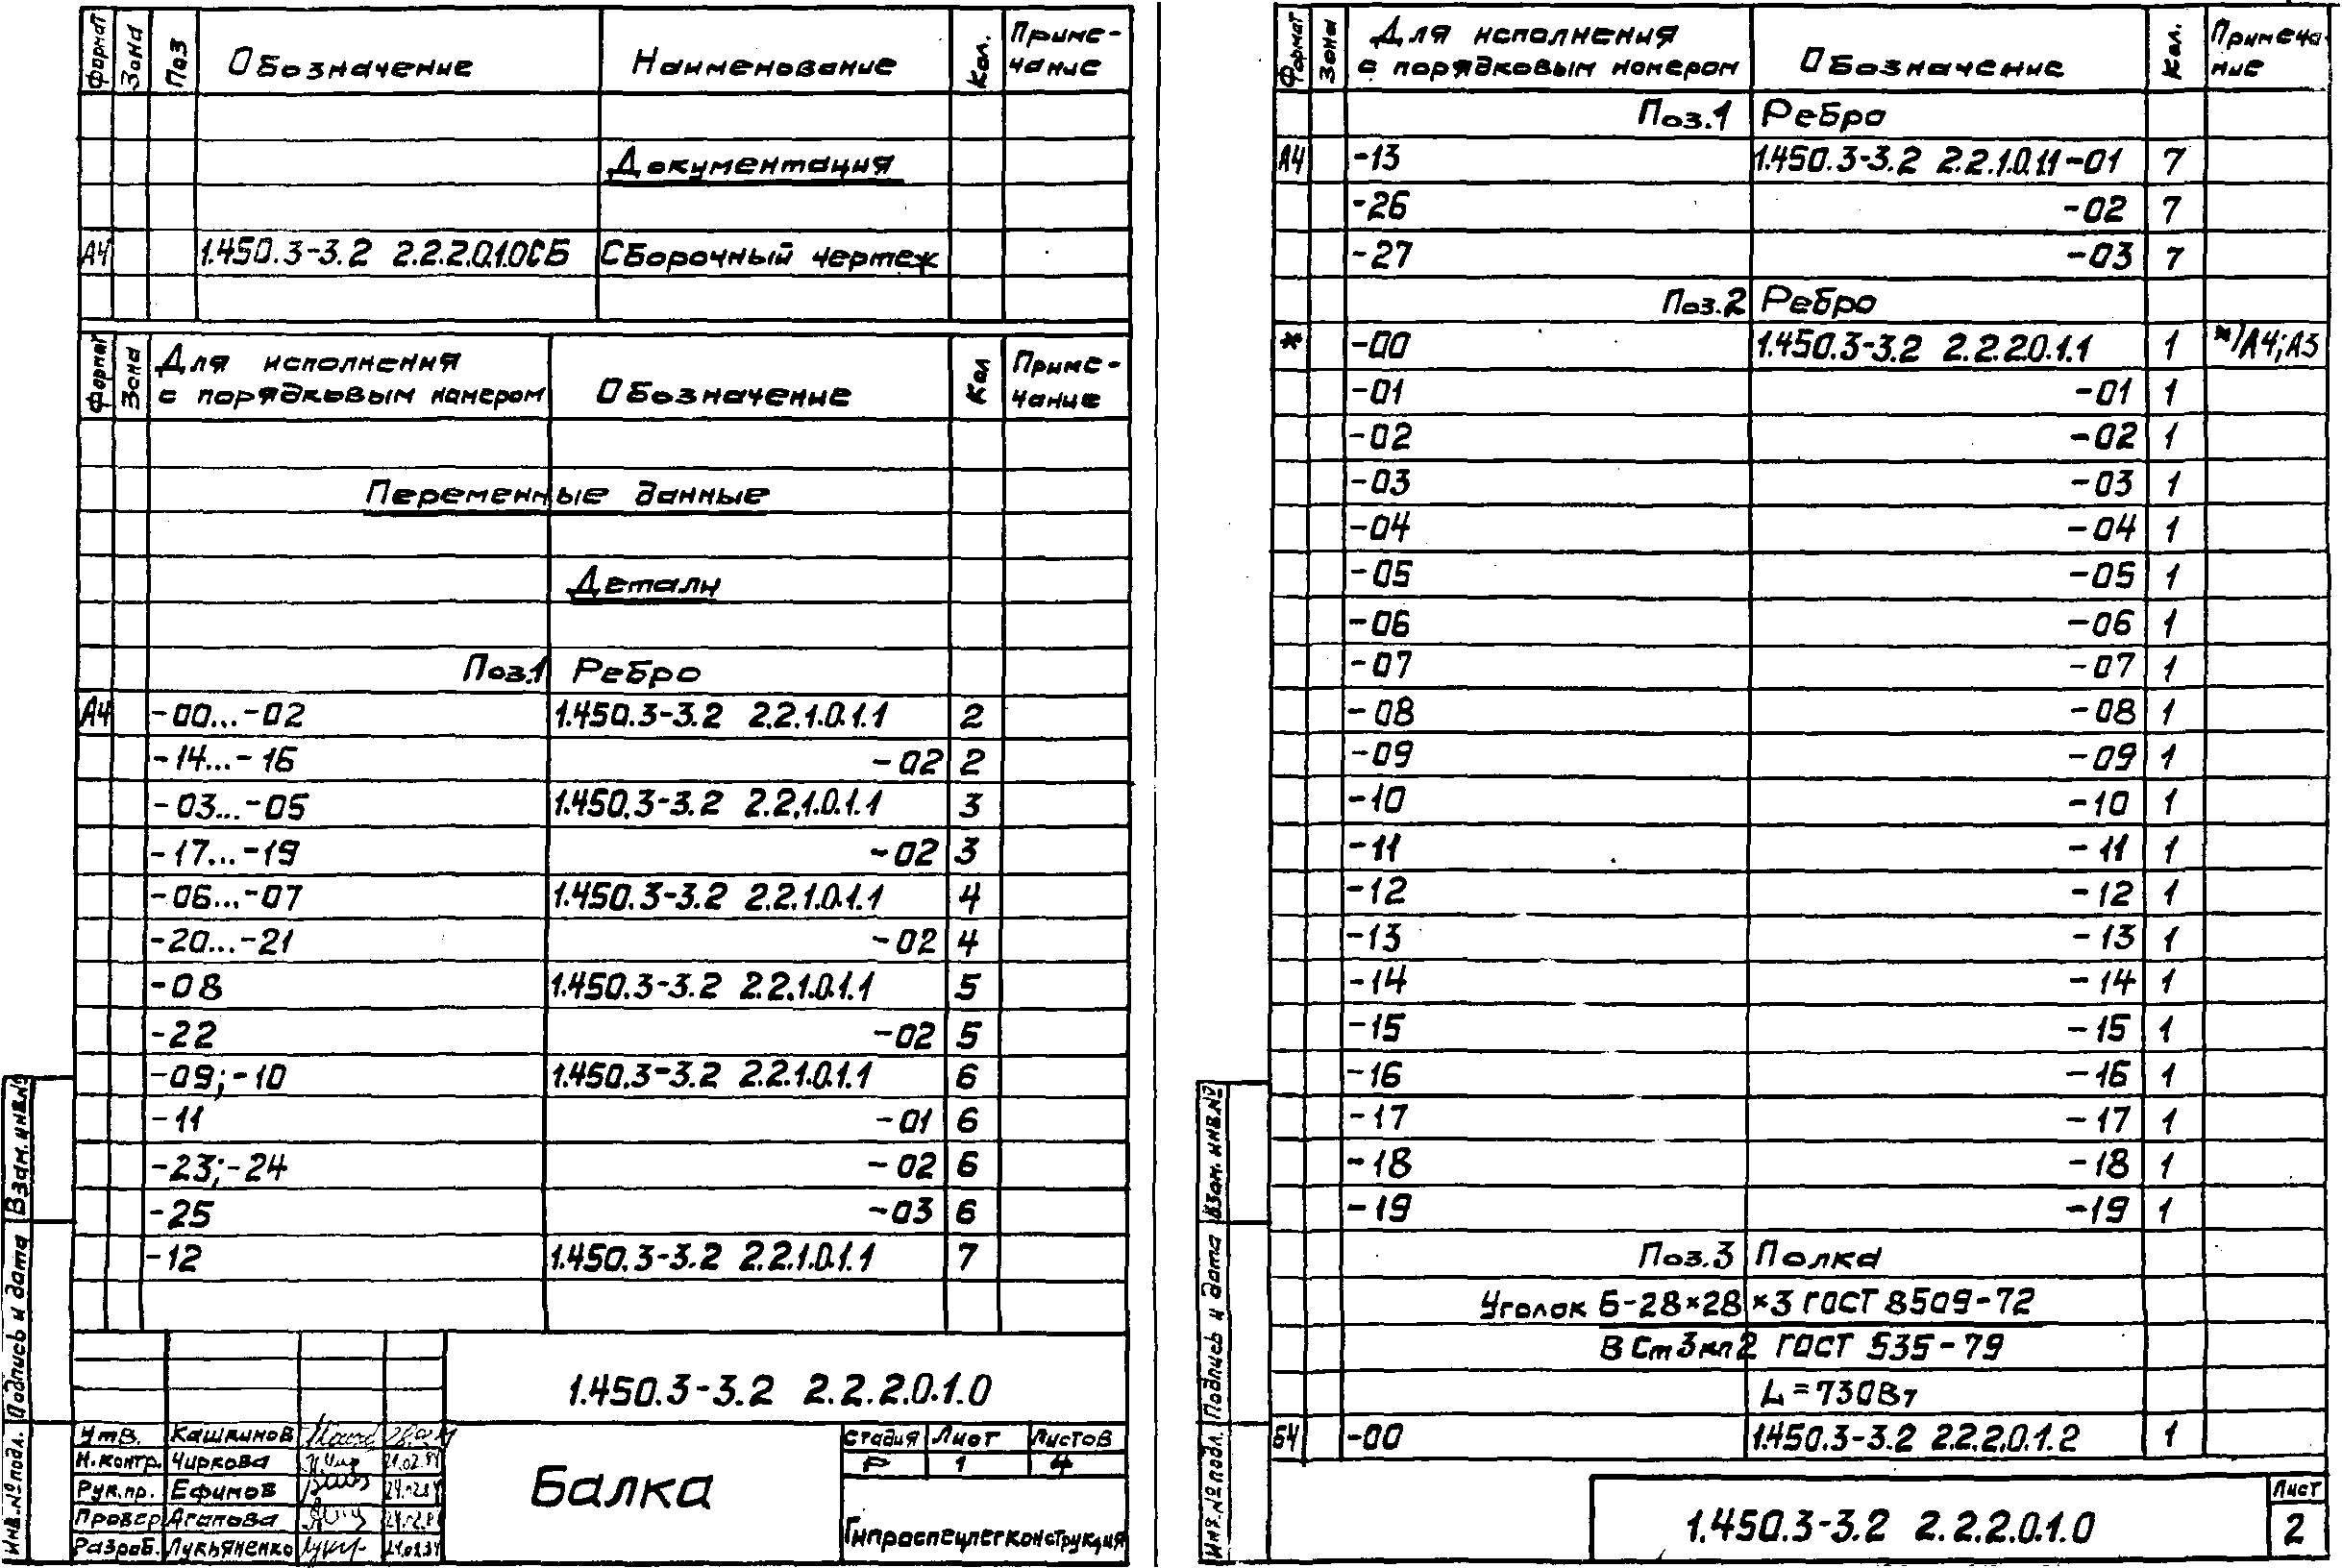 Формат Зона Поз Обозначение Наименование Кол. Приме-
чание
Документация
А4 1.450.3-3.2 2.2.2.0.1.0СБ Сборочный чертеж
Формат Зона Для исполнения
с порядковым номером Обозначение Кол Приме-
чание
Переменные данные
Детали
Поз.1 Ребро
А4 -00...-02 1.450.3-3.2 2.2.1.0.1.1 2
-14...-16 -02 2
-03...-05 1.450.3-3.2 2.2.1.0.1.1 3
-17...-19 -02 3
-06...-07 1.450.3-3.2 2.2.1.0.1.1 4
-20...-21 -02 4
-08 1.450.3-3.2 2.2.1.0.1.1 5
-22 -02 5
-09;-10 1.450.3-3.2 2.2.1.0.1.1 6
-11 -01 6
-23;-24 -02 6
-25 -03 6
-12 1.450.3-3.2 2.2.1.0.1.1 7
Инв.№подл. Подпись и дата Взам.инв.№
1.450.3-3.2 2.2.2.0.1.0
Утв. Кашкинов
Н.контр. Чиркова
Рук.пр. Ефимов
Провер Агапова
Разраб. Лукьяненко
Балка
Стадия Лист Листов
Р 1 4
Гипроспецлегконструкция
Формат Зона Для исполнения
с порядковым номером Обозначение Кол. Примеча-
ние
Поз.1 Ребро
А4 -13 1.450.3-3.2 2.2.1.0.1.1-01 7
-26 -02 7
-27 -03 7
Поз.2 Ребро
* -00 1.450.3-3.2 2.2.2.0.1.1 1 *)А4;А3
-01 -01 1
-02 -02 1
-03 -03 1
-04 -04 1
-05 -05 1
-06 -06 1
-07 -07 1
-08 -08 1
-09 -09 1
-10 -10 1
-11 -11 1
-12 -12 1
-13 -13 1
-14 -14 1
-15 -15 1
-16 -16 1
-17 -17 1
-18 -18 1
-19 -19 1
Поз.3 Полка
Уголок Б-28×28×3 ГОСТ 8509-72
ВСт3кп2 ГОСТ 535-79
L=730Вт
Б4 -00 1.450.3-3.2 2.2.2.0.1.2 1
Инв.№подл. Подпись и дата Взам.инв.№
1.450.3-3.2 2.2.2.0.1.0
Лист
2